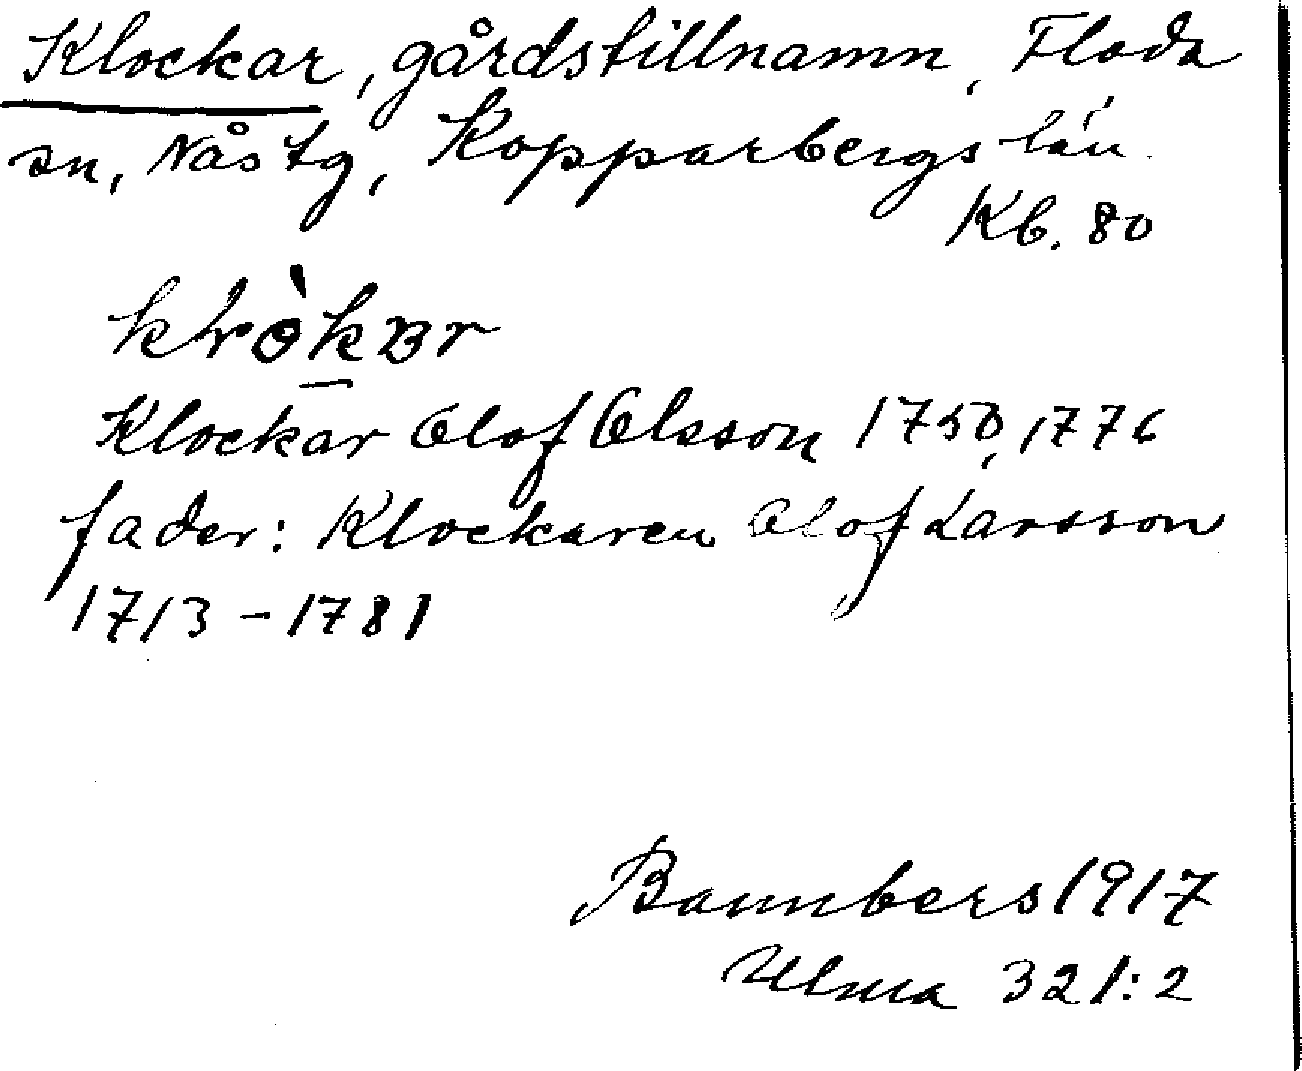 Klockar, gårdstillnamn, Floda
sn, Nås tg, Kopparbergs län.
Kb. 80
Klockar Olof Olsson 1750, 1776
fader: Klockaren Olof Larsson
1713 - 1781
Bannbers 1917
Ulma 321:2